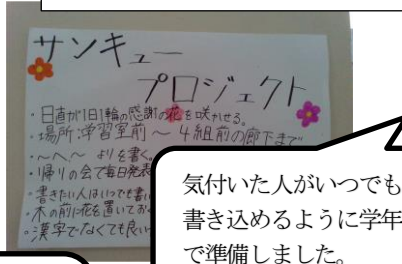 サンキュー
プロジェクト
・日直が1日1輪の感謝の花を咲かせる。
・場所:学習室前～4組前の廊下まで
・～へ～よりを書く。
・帰りの会で毎日発表
・書きたい人はいつでも書い
・木の前に花を置いてお
・漢字でなくても良い
気付いた人がいつでも
書き込めるように学年
で準備しました。